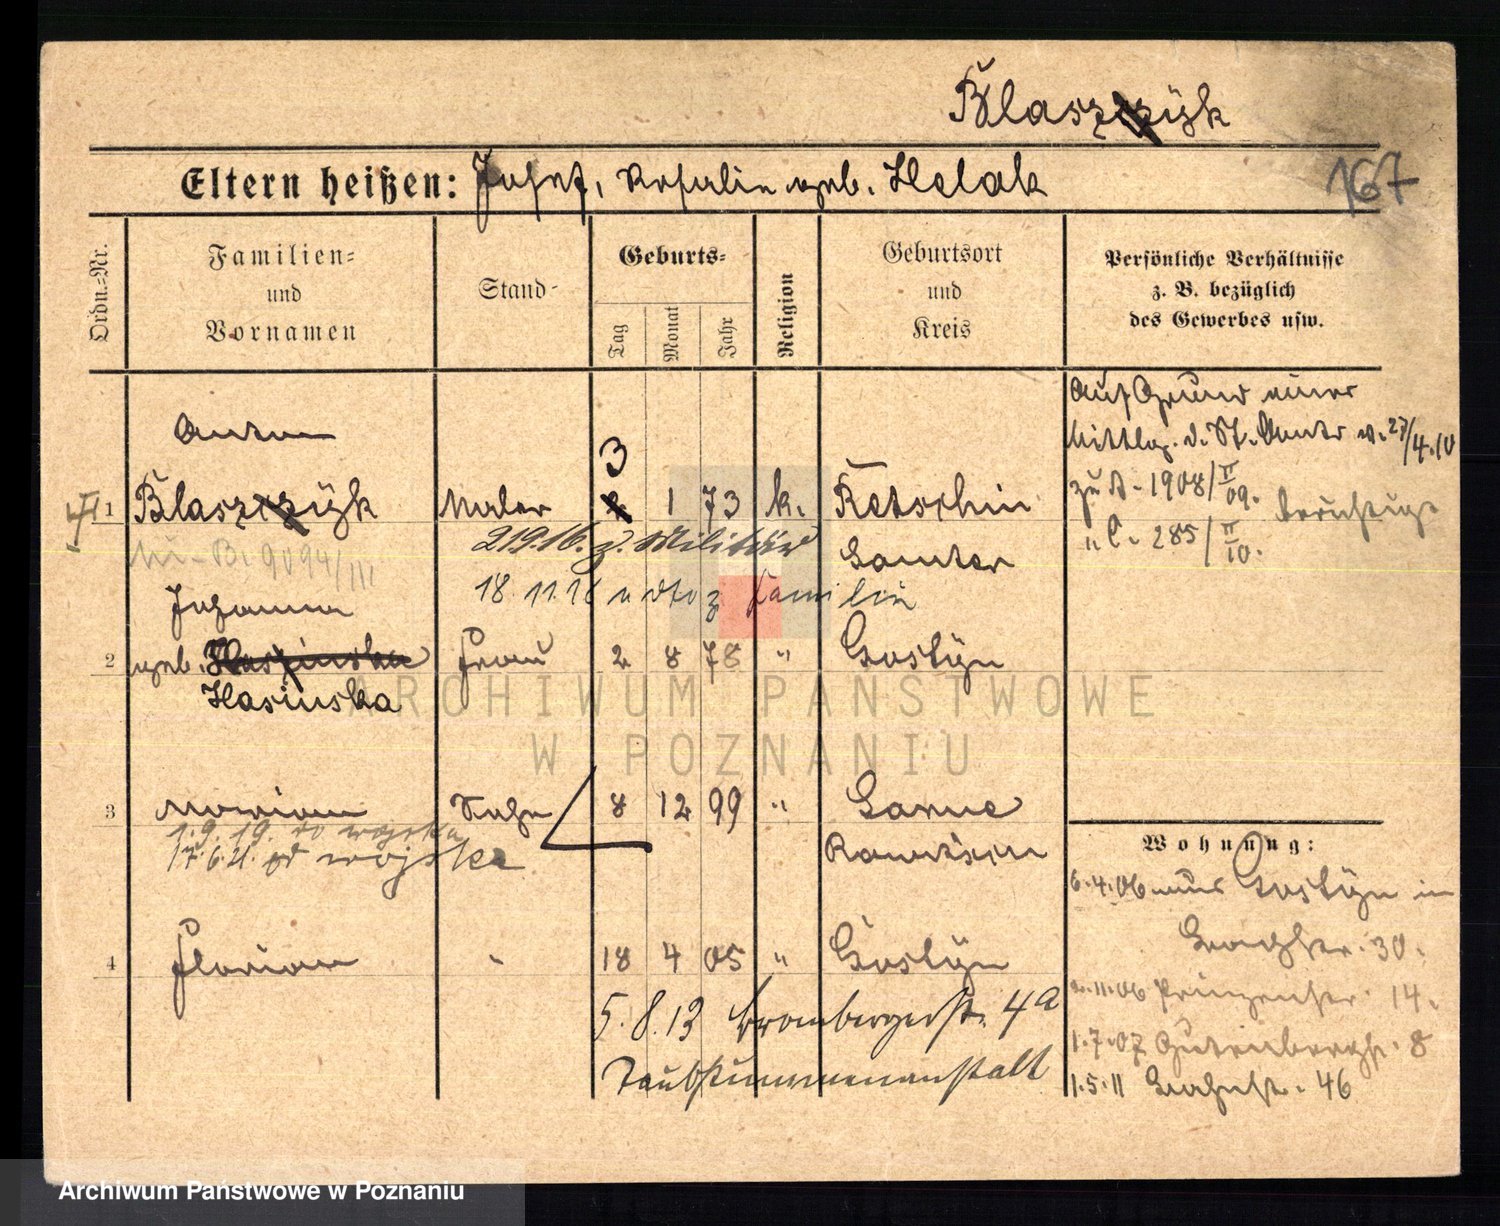 Blaszyk
Eltern heißen: Josef, Rosalie geb. Helak
167
Ordn.-Nr.
Familien-
und
Vornamen
Stand-
Geburts-
Tag
Monat
Jahr
Religion
Geburtsort
und
Kreis
Persönliche Verhältnisse
z. B. bezüglich
des Gewerbes usw.
Auf Grund einer
Mittlg. d. St. Amts v. 27/4.10
zu A - 1908/II 09. berichtigt
" C. 285/II 10.
Anton
3
1 Blaszyk Maler 1 73 k. Retschin
Samter
21.9.16. z. Militär
18.11.18 z Familie
Johanna
2 geb. Frau 2 8 78 " Gostyn
Hasinska
3 Marian Sohn 8 12 99 " Sarne
Rawitsch
1.9.19. do wojska
17.6.21. od wojska
4 Florian - 18 4 05 " Gostyn
5.8.13 Brombergerstr. 4a
Taubstummenanstalt
Wohnung:
6.4.06 aus Gostyn in
30.
11.06 Prinzenstr. 14.
1.7.07 Gutenbergstr. 8
1.5.11 46
ARCHIWUM PAŃSTWOWE
W POZNANIU
Archiwum Państwowe w Poznaniu